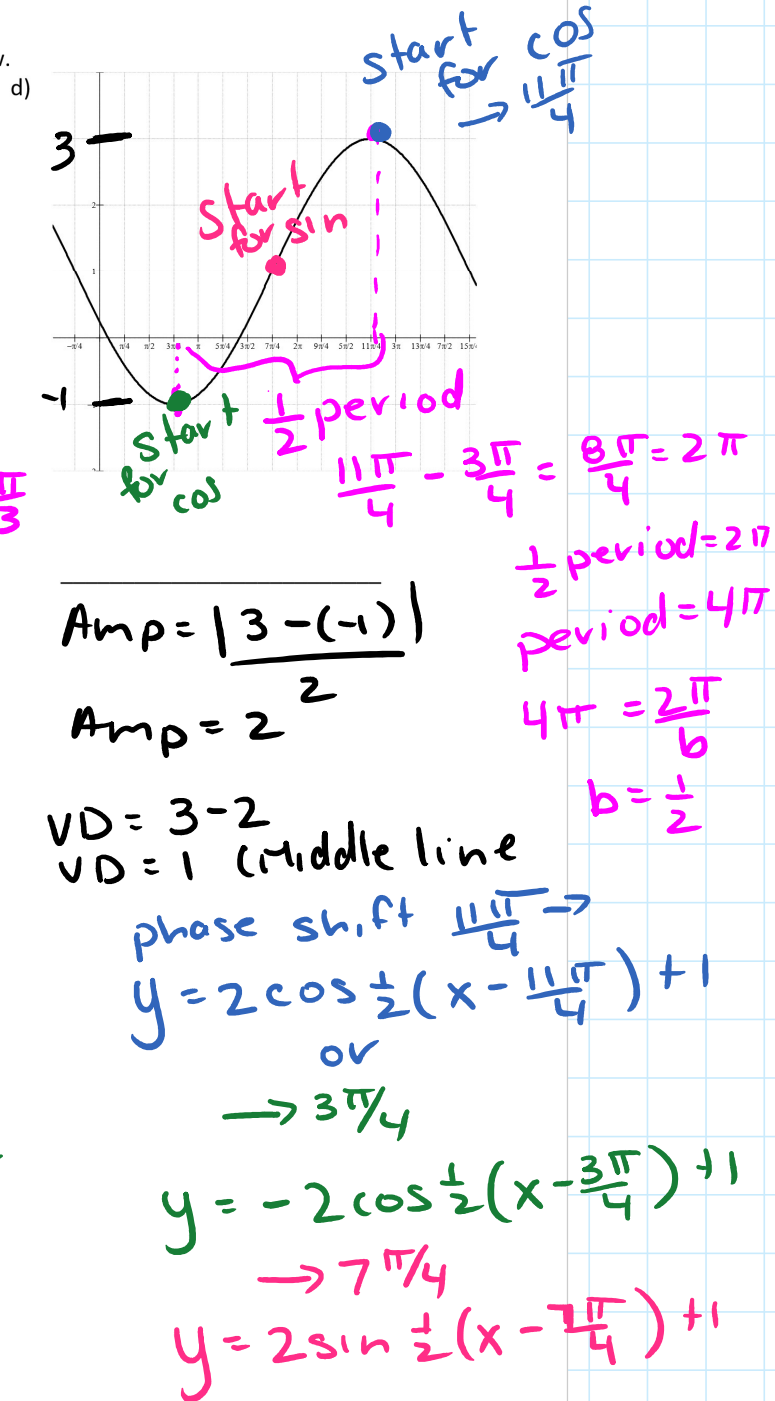 v.
d)
start
for cos
→ 11π/4
3
2
start
for sin
1
-π/4 π/4 π/2 3π/4 π 5π/4 3π/2 7π/4 2π 9π/4 5π/2 11π/4 3π 13π/4 7π/2 15π/4
-1
start
for
cos
1/2 period
11π/4 - 3π/4 = 8π/4 = 2π
π/3
1/2 period = 2π
period = 4π
Amp = |3-(-1)|/2
Amp = 2
4π = 2π/b
b = 1/2
VD = 3-2
VD = 1 (Middle line
phase shift 11π/4 →
y = 2cos 1/2(x - 11π/4) + 1
or
→ 3π/4
y = -2cos 1/2(x - 3π/4) + 1
→ 7π/4
y = 2sin 1/2(x - 7π/4) + 1